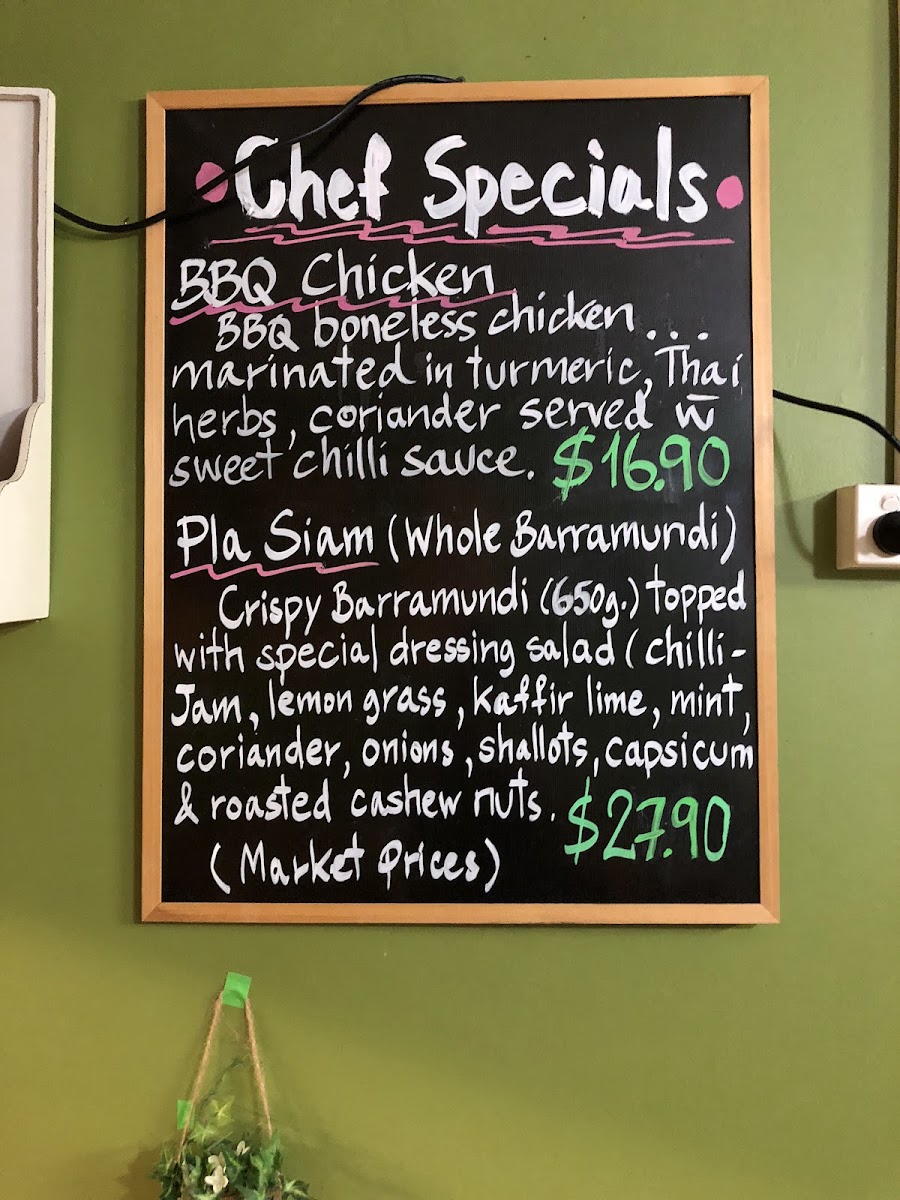 Chef Specials
BBQ Chicken
BBQ boneless chicken...
marinated in turmeric, Thai
herbs, coriander served w̄
sweet chilli sauce. $16.90
Pla Siam (Whole Barramundi)
Crispy Barramundi (650g.) topped
with special dressing salad (chilli-
Jam, lemon grass, kaffir lime, mint,
coriander, onions, shallots, capsicum
& roasted cashew nuts. $27.90
(Market Prices)